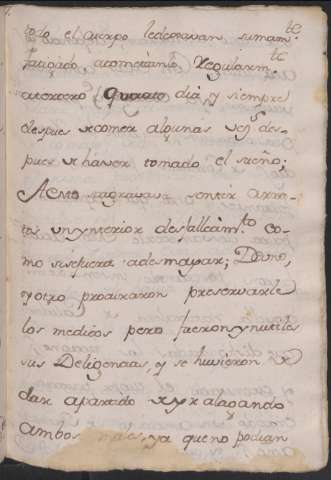 todo el cuerpo le dexavan sumamte.
fatigado acometiendo regularmte.
a tercero quarto dia, y siempre
despues de comer algunas vezs des-
pues de haver tomado el sueño;
entre ra-
tos un ynterior desfallecimto co-
mo si se fuera a desmayar; De uno,
y otro procuraron preservarle
los medicos pero fueron ynutiles
sus Deligencias, y se huvieron de
dar a partido
ambos males, ya que no podian